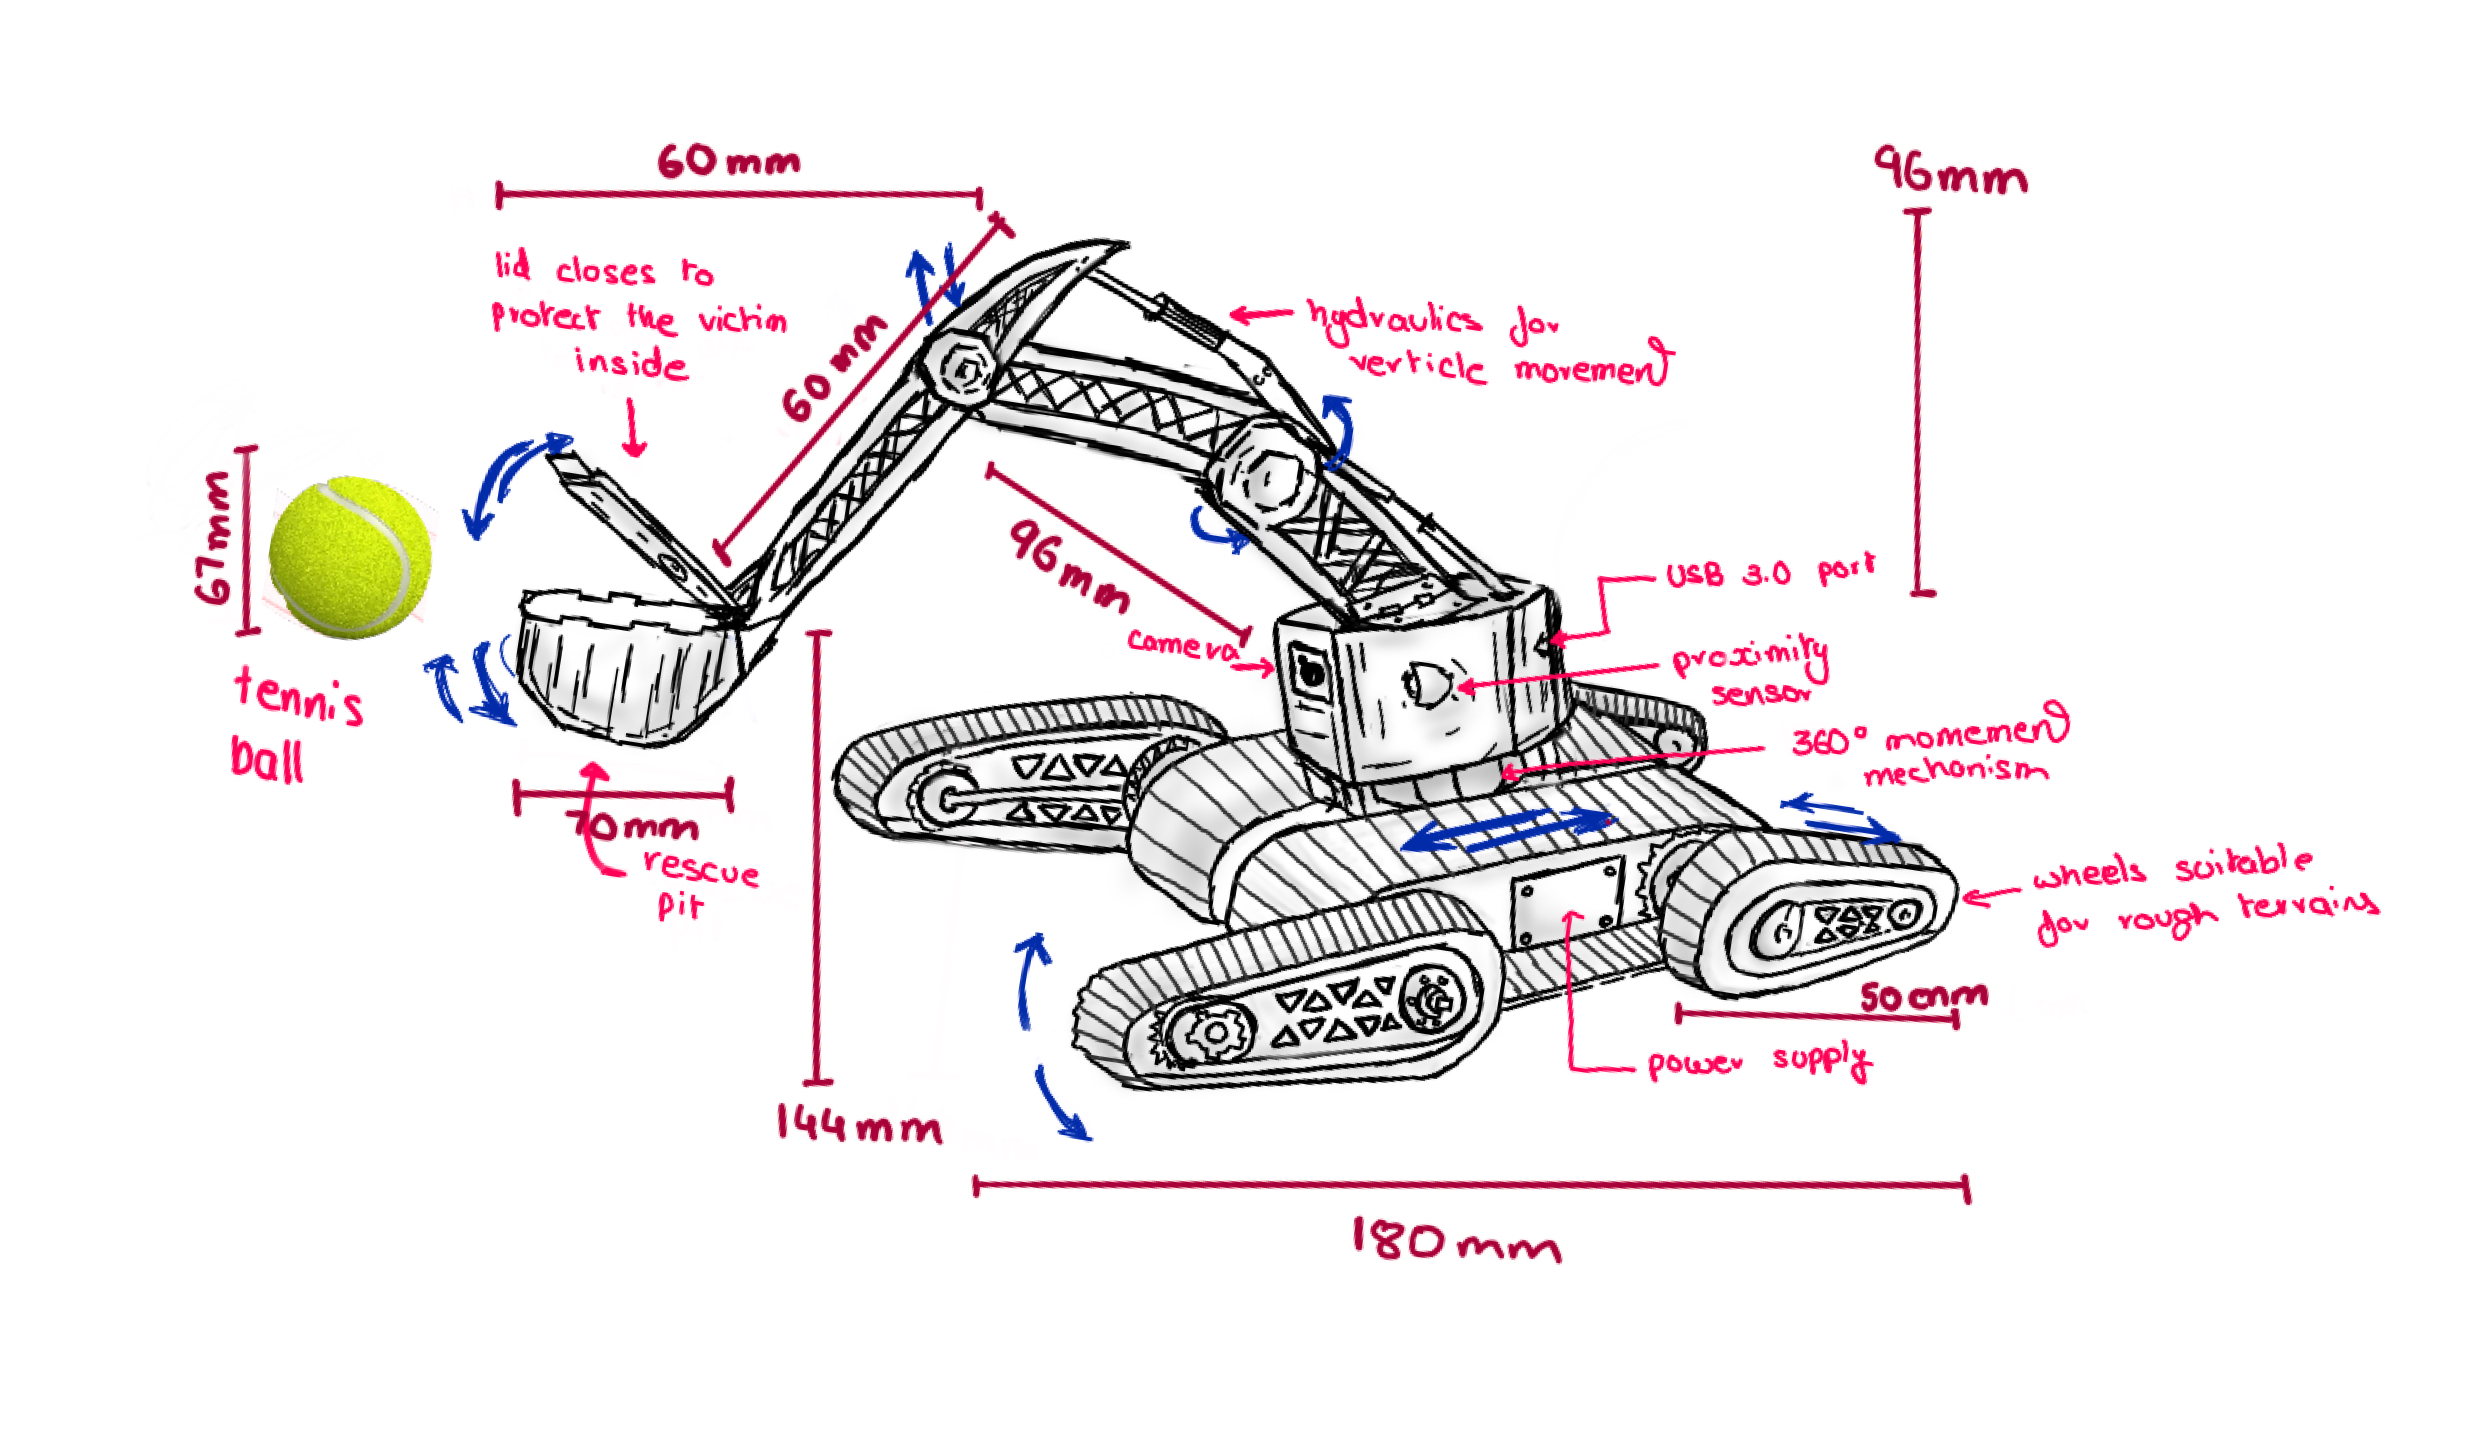 60mm
96mm
lid closes to
protect the victim
inside
hydraulics for
verticle movement
60mm
67mm
96mm
USB 3.0 port
camera
proximity
sensor
tennis
ball
360° momement
mechanism
70mm
rescue
pit
wheels suitable
for rough terrains
50cmm
power supply
144mm
180mm